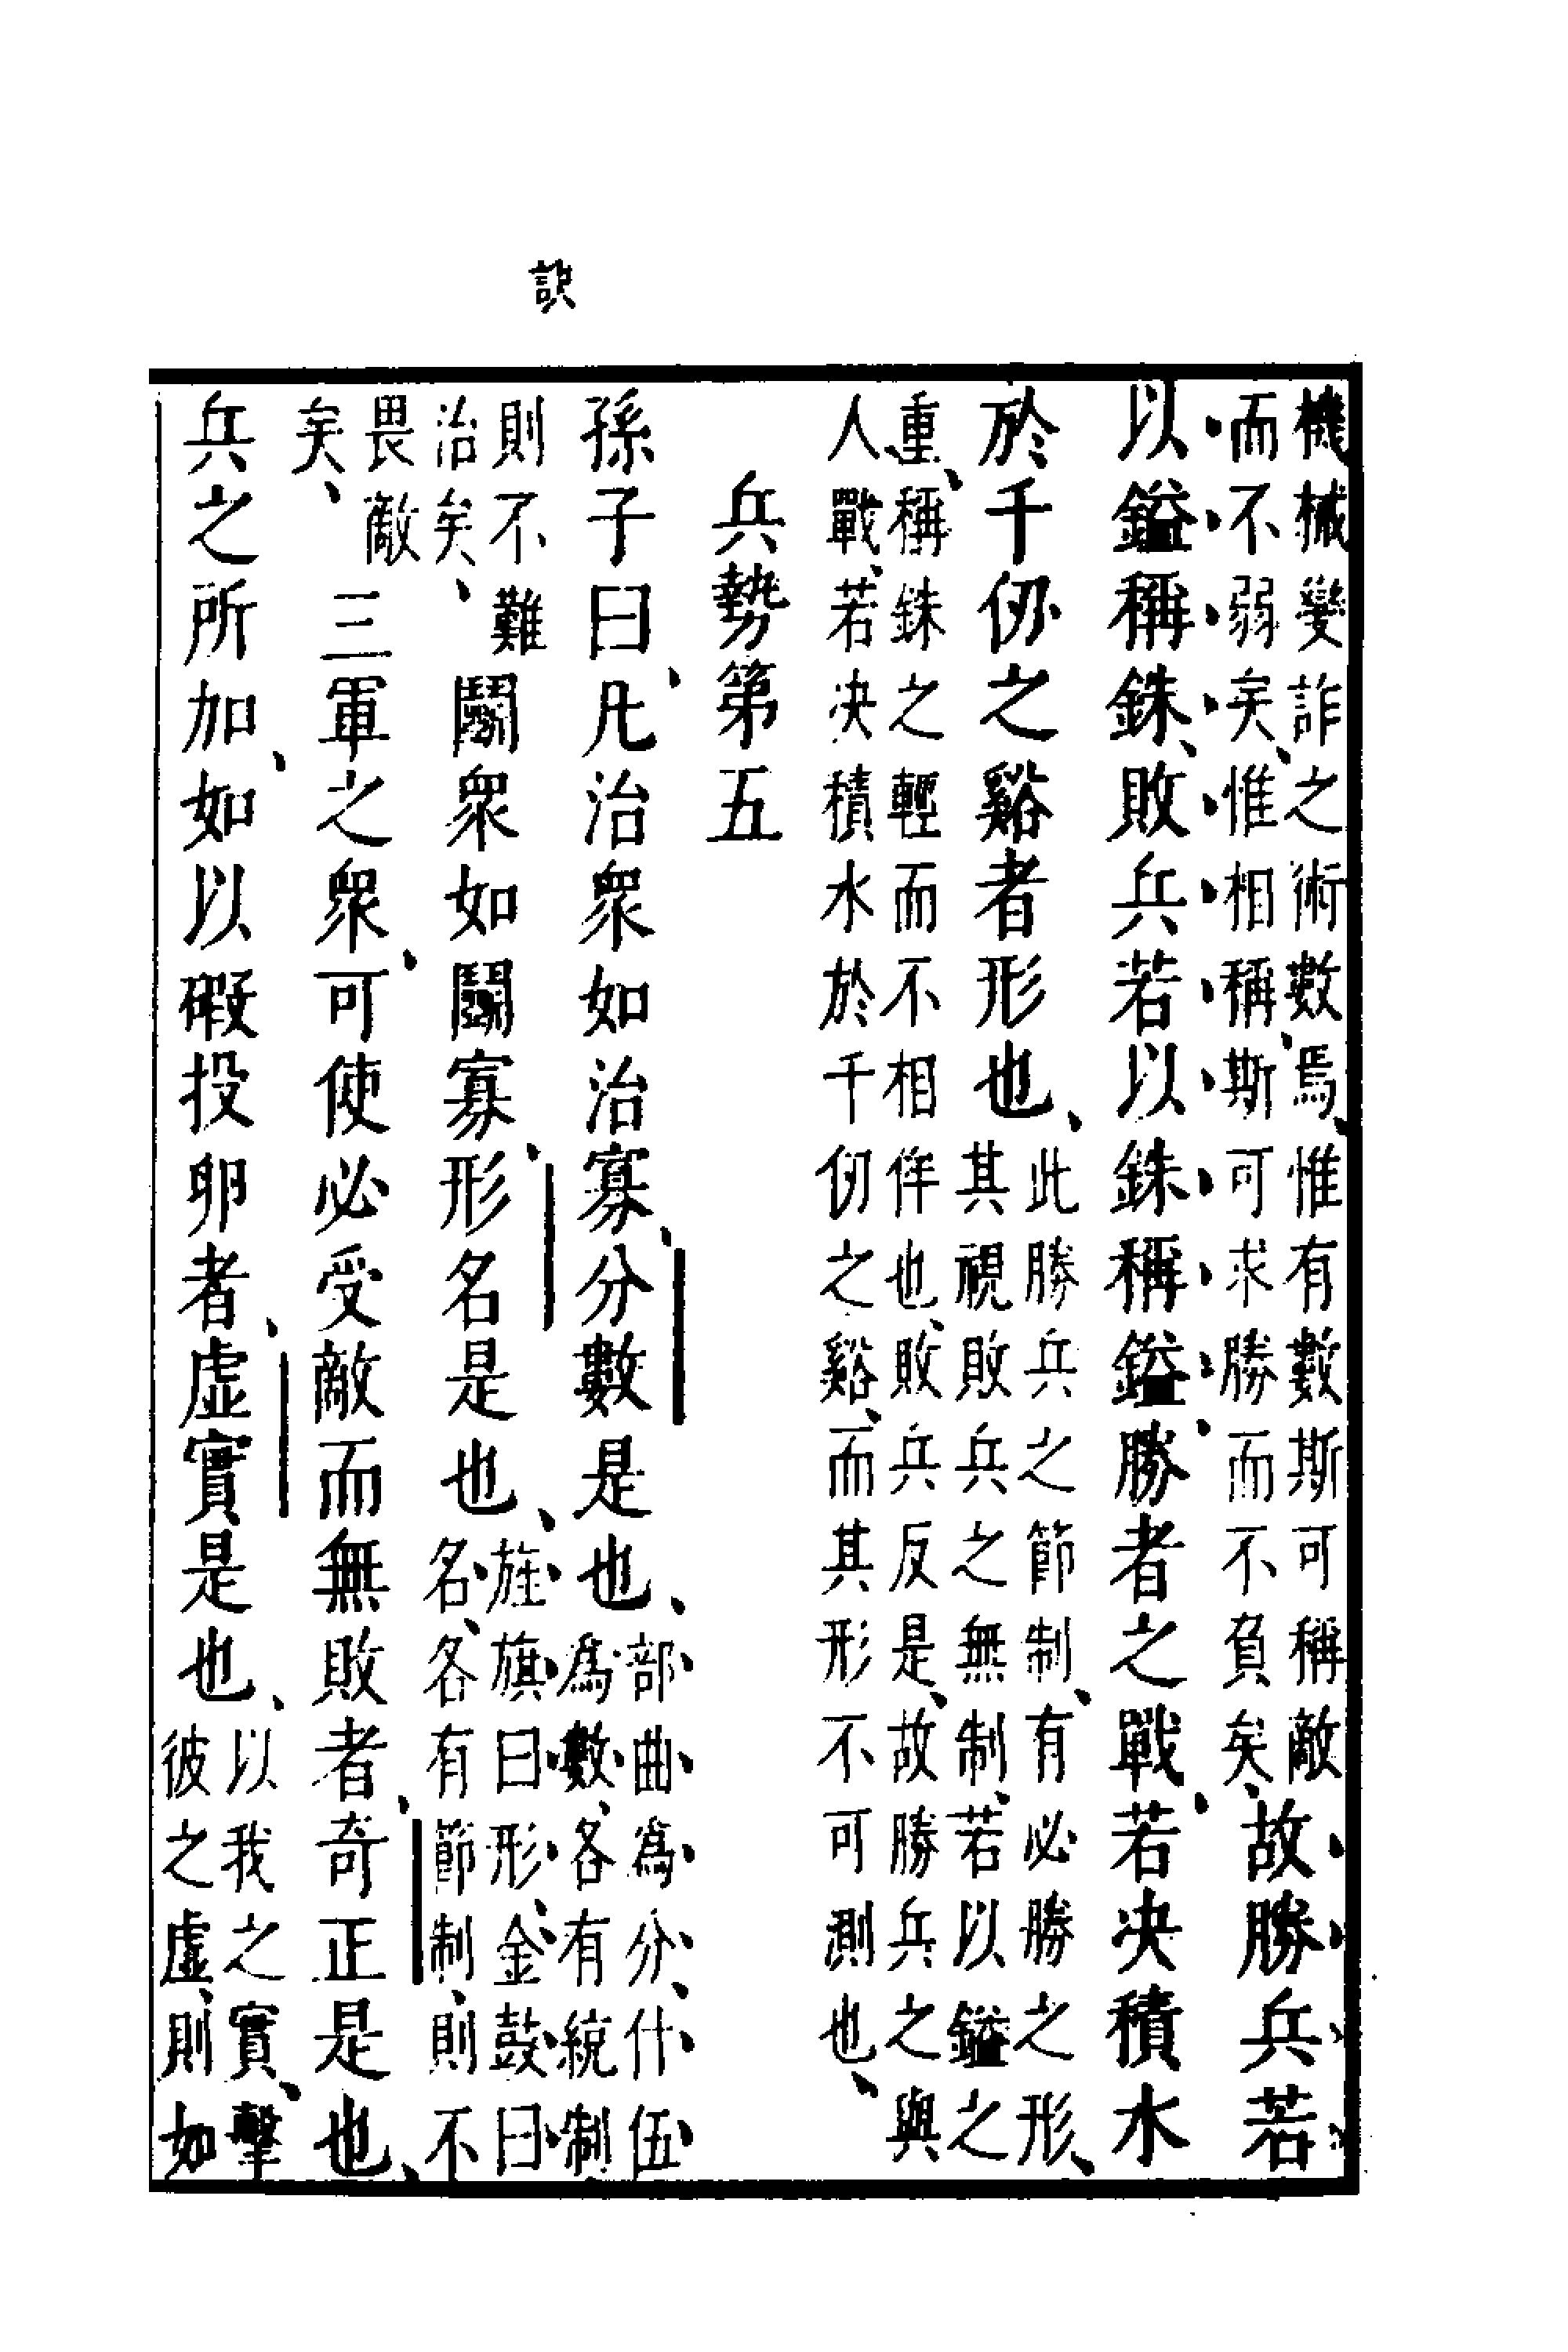 訣
機械變詐之術數、焉、惟有數斯可稱敵
而不弱矣、惟相稱斯可求勝而不負矣、
故勝兵若
以鎰稱銖、敗兵若以銖稱鎰、勝者之戰、若决積水
於千仞之谿者形也、
此勝兵之節制、有必勝之形、
其視敗兵之無制、若以鎰之
重、稱銖之輕而不相侔也、敗兵反是、故勝兵之與
人戰、若决積水於千仞之谿、而其形不可測也、
兵勢第五
孫子曰、凡治衆如治寡、分數是也、
部曲爲分、什伍
爲數、各有統制
則不難
治矣、
鬭衆如鬭寡、形名是也、
旌旗曰形、金鼓曰
名、各有節制、則不
畏敵
矣、
三軍之衆、可使必受敵而無敗者、奇正是也、
兵之所加、如以碬投卵者、虛實是也、
以我之實、擊
彼之虛、則如